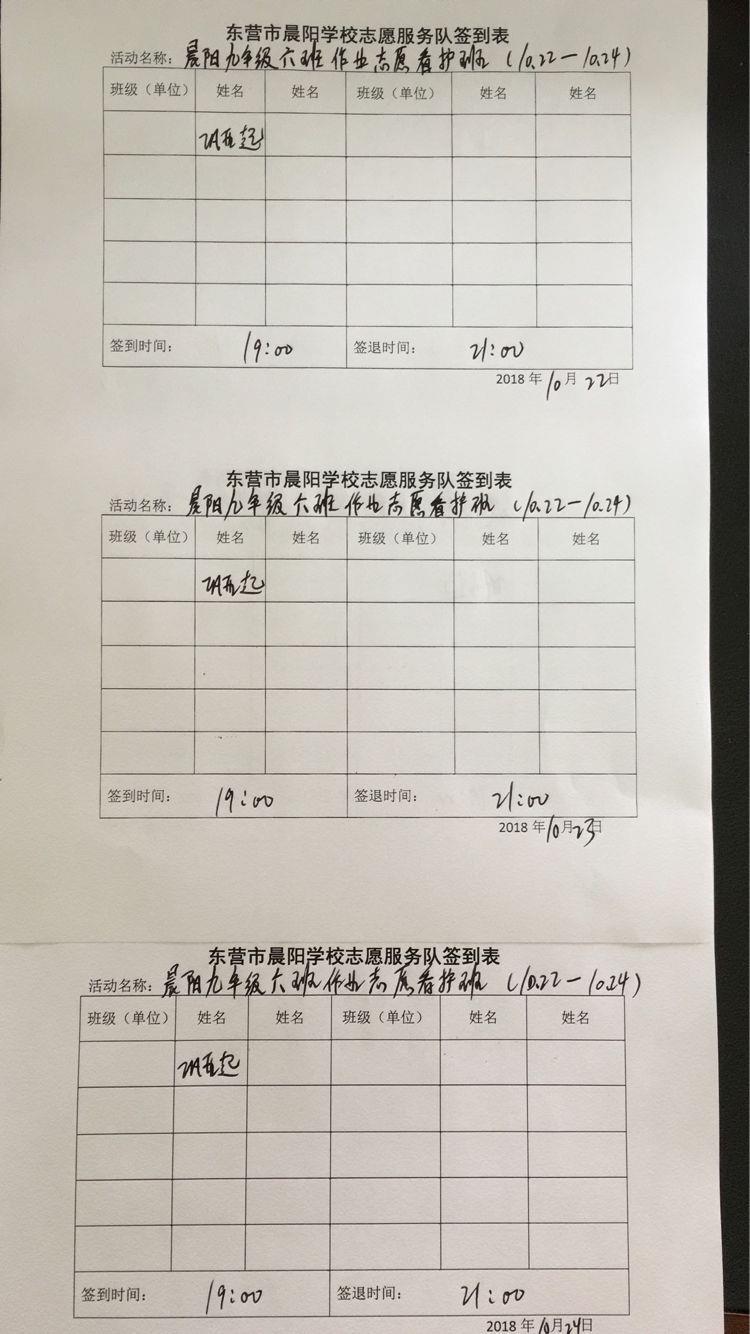 东营市晨阳学校志愿服务队签到表
活动名称：晨阳九年级六班作业志愿看护班（10.22—10.24）
班级（单位） 姓名 姓名 班级（单位） 姓名 姓名
签到时间： 19:00 签退时间： 21:00
2018 年 10 月 22 日
东营市晨阳学校志愿服务队签到表
活动名称：晨阳九年级六班作业志愿看护班（10.22—10.24）
班级（单位） 姓名 姓名 班级（单位） 姓名 姓名
签到时间： 19:00 签退时间： 21:00
2018 年 10 月 23 日
东营市晨阳学校志愿服务队签到表
活动名称：晨阳九年级六班作业志愿看护班（10.22—10.24）
班级（单位） 姓名 姓名 班级（单位） 姓名 姓名
签到时间： 19:00 签退时间： 21:00
2018 年 10 月 24 日